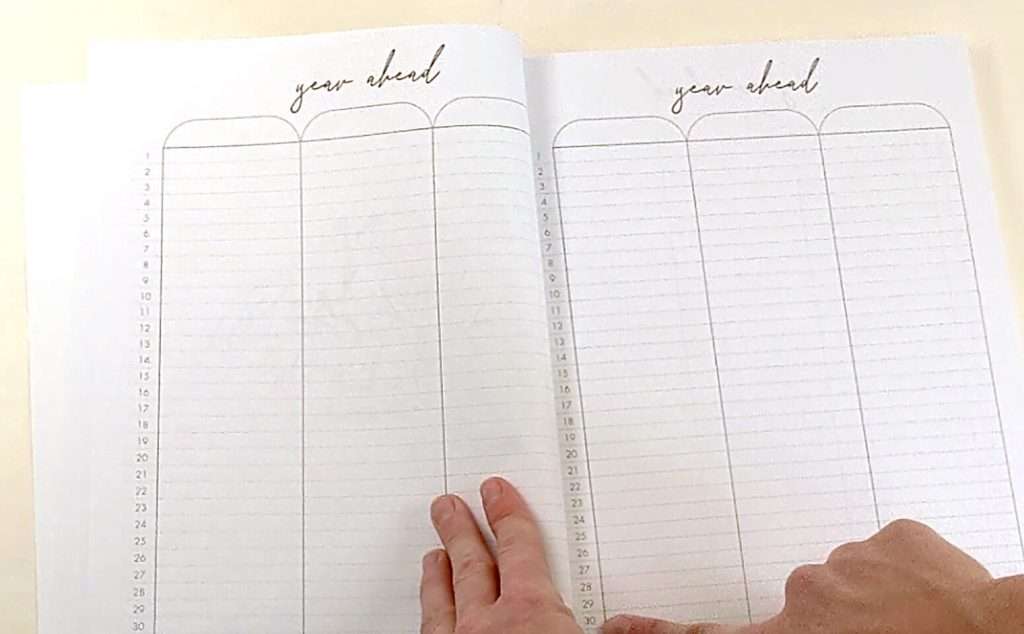 year ahead
1
2
3
4
5
6
7
8
9
10
11
12
13
14
15
16
17
18
19
20
21
22
23
24
25
26
27
28
29
30
year ahead
1
2
3
4
5
6
7
8
9
10
11
12
13
14
15
16
17
18
19
20
21
22
23
24
25
26
27
28
29
30